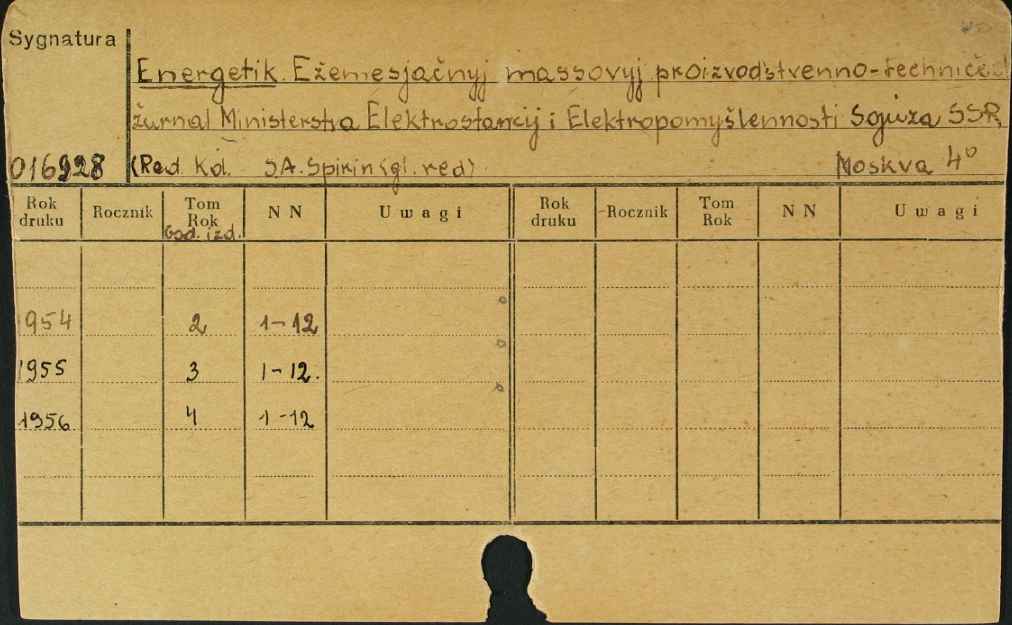 Sygnatura
Energetik. Ežemesjačnyj massovyj proizvodstvenno-techničes
žurnal Ministerstva Elektrostancij i Elektropomyšlennosti Sojuza SSR
016928 (Red. Kol. J.A. Spirin (gl. red) Moskva 4°
Rok druku Rocznik Tom Rok God. izd. N N Uwagi Rok druku Rocznik Tom Rok N N Uwagi
1954 2 1-12
1955 3 1-12.
1956 4 1-12